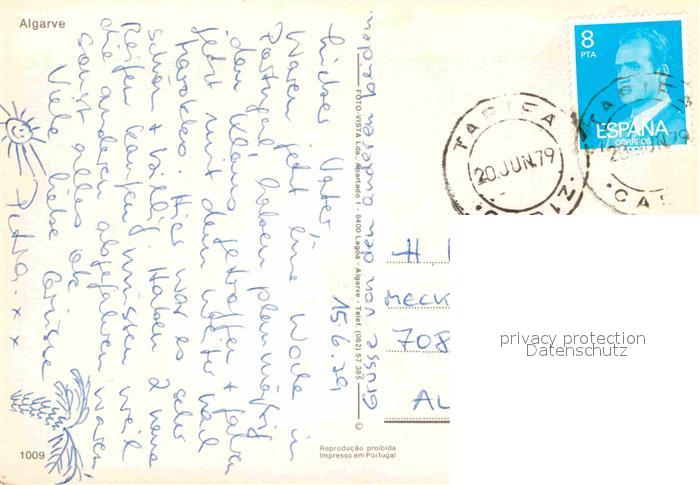 Algarve
15.6.79
Lieber Vater
Waren jetzt eine Woche in
Portugal, haben planmäßig
den Klaus getroffen + fahren
jetzt mit dem weiter nach
Marokko. Hier war es sehr
schön + billig. Haben 2 neue
Reifen kaufen müssen weil
die anderen abgefahren waren
Sonst alles ok
Viele liebe Grüsse
Petra x x
Grüsse von den anderen beiden.
FOTO-VISTA Lda., Apartado 1 - 8400 Lagoa - Algarve - Telef. (082) 57 385
©
8
PTA
ESPAÑA
CORREOS
TARIFA
20.JUN.79
CADIZ
TARIF
20.JUN.79
CA
H.
MECK
708
AL
privacy protection
Datenschutz
1009
Reprodução proibida
Impresso em Portugal